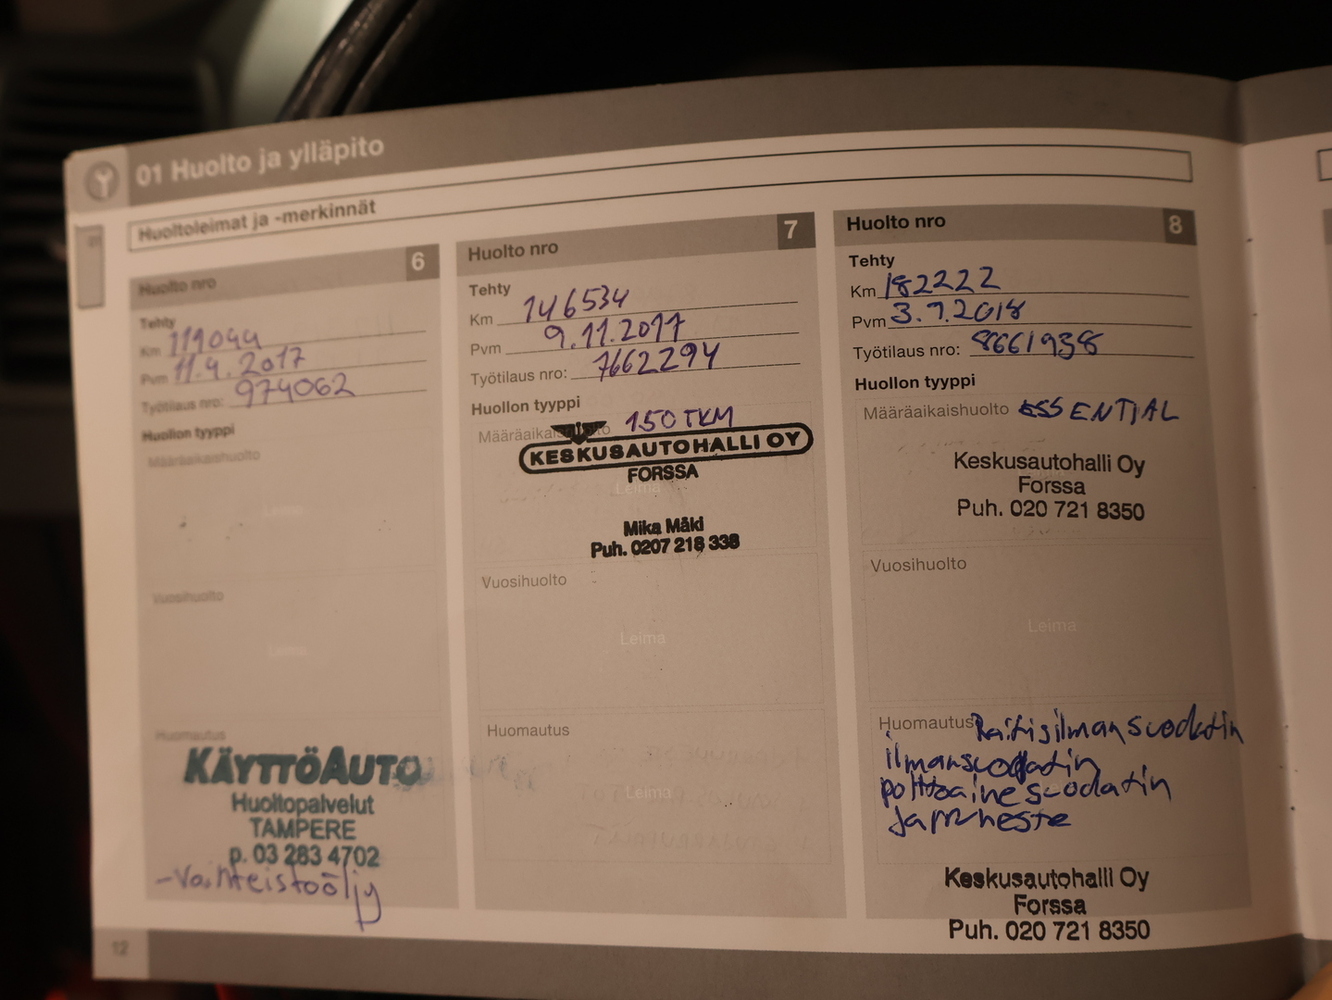 01 Huolto ja ylläpito
Huoltoleimat ja -merkinnät
Huolto nro 6
Tehty
Km 119044
Pvm 11.4.2017
Työtilaus nro: 974062
Huollon tyyppi
Määräaikaishuolto
Leima
Vuosihuolto
Leima
Huomautus
KÄYTTÖAUTO
Huoltopalvelut
TAMPERE
p. 03 283 4702
-Vaihteistoöljy
12
Huolto nro 7
Tehty
Km 146534
Pvm 9.11.2017
Työtilaus nro: 7662294
Huollon tyyppi
Määräaikaishuolto 150 TKM
KESKUSAUTOHALLI OY
FORSSA
Leima
Mika Mäki
Puh. 0207 218 338
Vuosihuolto
Leima
Huomautus
Leima
Huolto nro 8
Tehty
Km 182222
Pvm 3.9.2018
Työtilaus nro: 8661938
Huollon tyyppi
Määräaikaishuolto ESSENTIAL
Keskusautohalli Oy
Forssa
Puh. 020 721 8350
Vuosihuolto
Leima
Huomautus Raitisilmansuodatin
ilmansuodatin
polttoainesuodatin
Jarruneste
Keskusautohalli Oy
Forssa
Puh. 020 721 8350